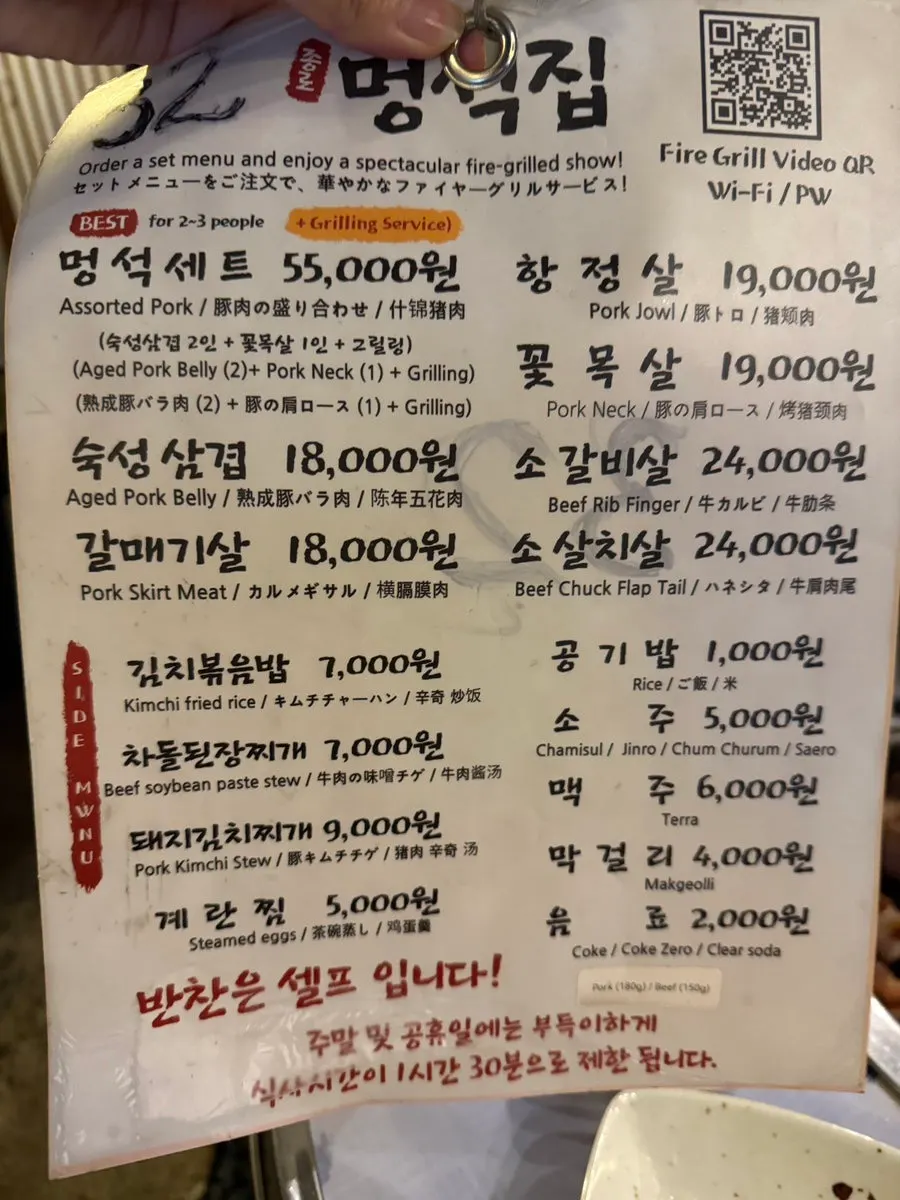 32
종로
멍석집
Fire Grill Video QR
Wi-Fi / PW
Order a set menu and enjoy a spectacular fire-grilled show!
セットメニューをご注文で、華やかなファイヤーグリルサービス!
BEST for 2~3 people + Grilling Service)
멍석세트 55,000원
Assorted Pork / 豚肉の盛り合わせ / 什锦猪肉
(숙성삼겹 2인 + 꽃목살 1인 + 그릴링)
(Aged Pork Belly (2)+ Pork Neck (1) + Grilling)
(熟成豚バラ肉 (2) + 豚の肩ロース (1) + Grilling)
숙성삼겹 18,000원
Aged Pork Belly / 熟成豚バラ肉 / 陈年五花肉
갈매기살 18,000원
Pork Skirt Meat / カルメギサル / 横膈膜肉
항정살 19,000원
Pork Jowl / 豚トロ / 猪颊肉
꽃목살 19,000원
Pork Neck / 豚の肩ロース / 烤猪颈肉
소갈비살 24,000원
Beef Rib Finger / 牛カルビ / 牛肋条
소살치살 24,000원
Beef Chuck Flap Tail / ハネシタ / 牛肩肉尾
SIDE MWNU
김치볶음밥 7,000원
Kimchi fried rice / キムチチャーハン / 辛奇 炒饭
차돌된장찌개 7,000원
Beef soybean paste stew / 牛肉の味噌チゲ / 牛肉酱汤
돼지김치찌개 9,000원
Pork Kimchi Stew / 豚キムチチゲ / 猪肉 辛奇 汤
계란찜 5,000원
Steamed eggs / 茶碗蒸し / 鸡蛋羹
공기밥 1,000원
Rice / ご飯 / 米
소주 5,000원
Chamisul / Jinro / Chum Churum / Saero
맥주 6,000원
Terra
막걸리 4,000원
Makgeolli
음료 2,000원
Coke / Coke Zero / Clear soda
Pork (180g) / Beef (150g)
반찬은 셀프 입니다!
주말 및 공휴일에는 부득이하게
식사시간이 1시간 30분으로 제한 됩니다.